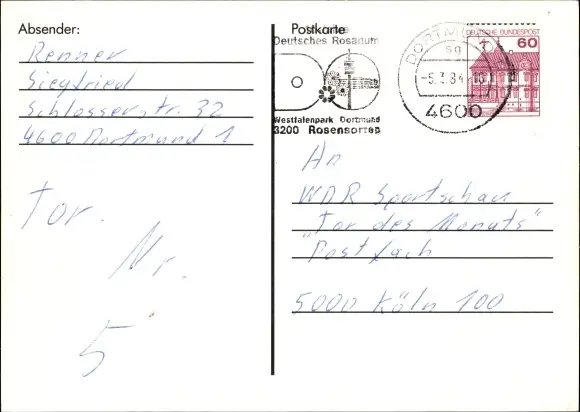 Absender:
Renner
Siegfried
Schlosserstr. 32
4600 Dortmund 1
Tor.
Nr.
5
Postkarte
Deutsches Rosarium
Westfalenpark Dortmund
3200 Rosensorten
DORTMUND
sg
-5.3.84
4600
DEUTSCHE BUNDESPOST
60
An
WDR Sportschau
"Tor des Monats"
Postfach
5000 Köln 100